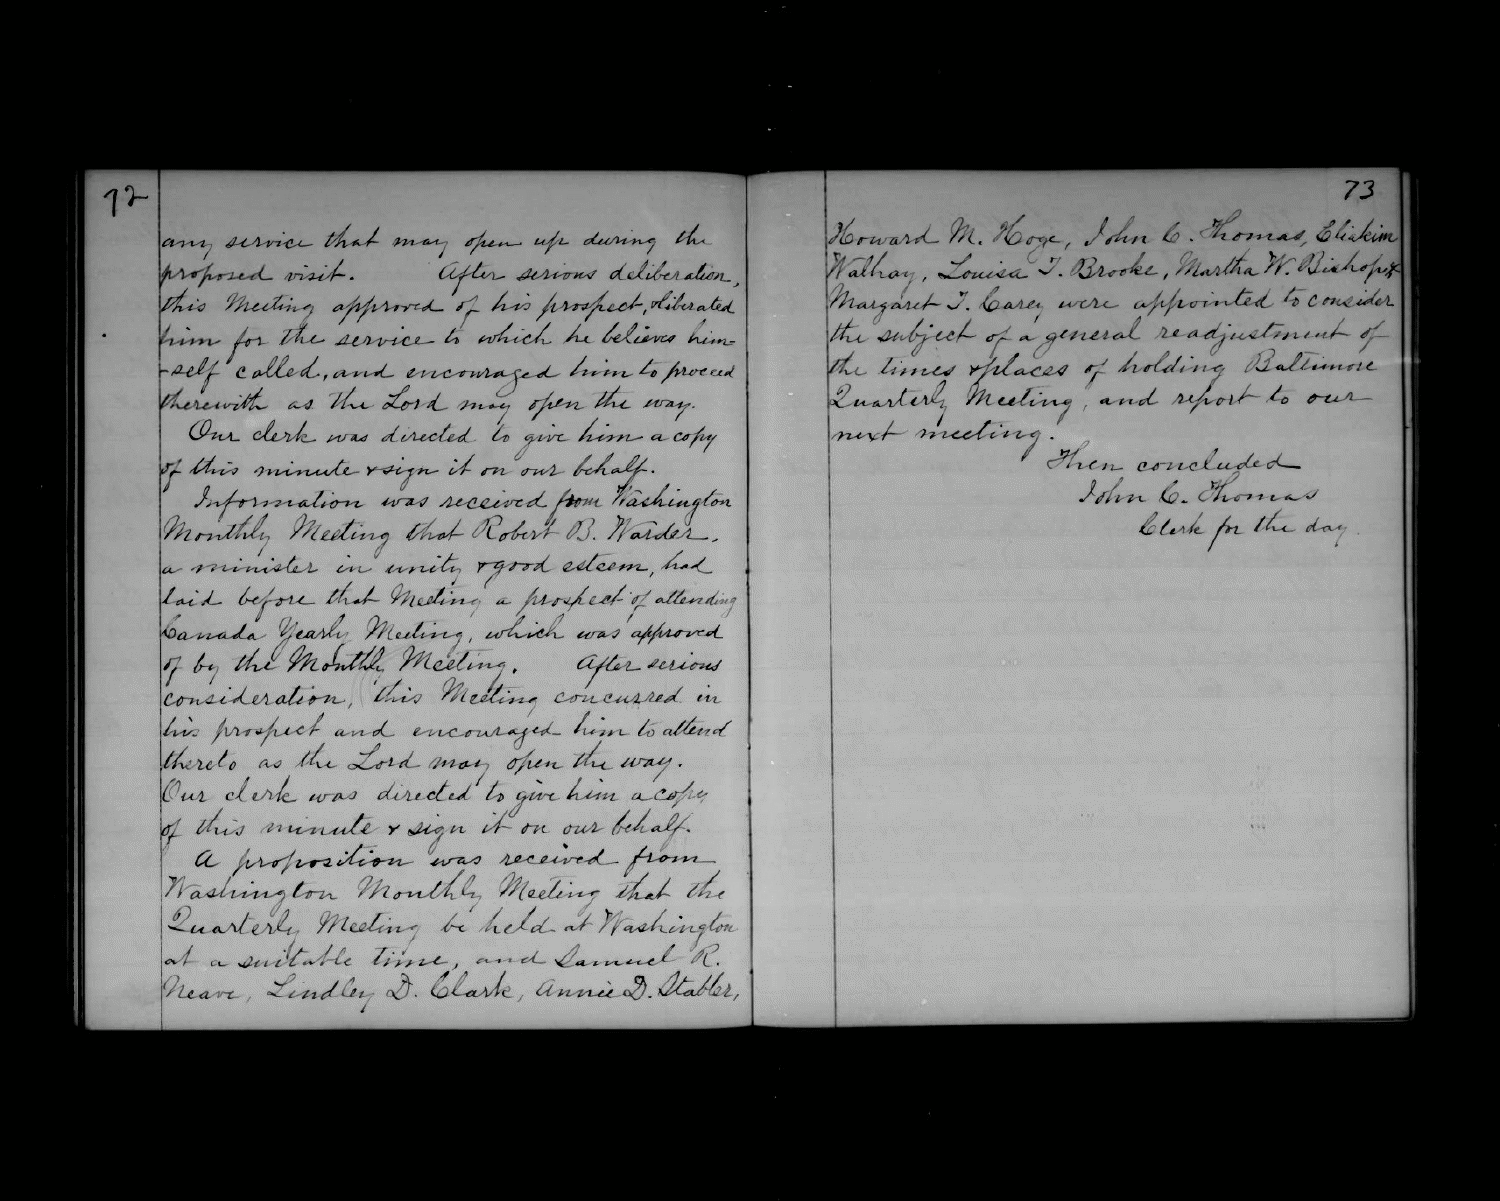 72
any service that may open up during the
proposed visit. After serious deliberation,
this Meeting approved of his prospect, & liberated
him for the service to which he believes him-
-self called, and encouraged him to proceed
therewith as the Lord may open the way.
Our clerk was directed to give him a copy
of this minute & sign it on our behalf.
Information was received from Washington
Monthly Meeting that Robert B. Warder,
a minister in unity & good esteem, had
laid before that Meeting a prospect of attending
Canada Yearly Meeting, which was approved
of by the Monthly Meeting. After serious
consideration, this Meeting concurred in
his prospect and encouraged him to attend
thereto as the Lord may open the way.
Our clerk was directed to give him a copy
of this minute & sign it on our behalf.
A proposition was received from
Washington Monthly Meeting that the
Quarterly Meeting be held at Washington
at a suitable time, and Samuel R.
Neave, Lindley D. Clark, Annie D. Stabler,
73
Howard M. Hoge, John C. Thomas, Eliakim
Walhay, Louisa T. Brooke, Martha W. Bishop &
Margaret T. Carey were appointed to consider
the subject of a general readjustment of
the times & places of holding Baltimore
Quarterly Meeting, and report to our
next meeting.
Then concluded
John C. Thomas
Clerk for the day.